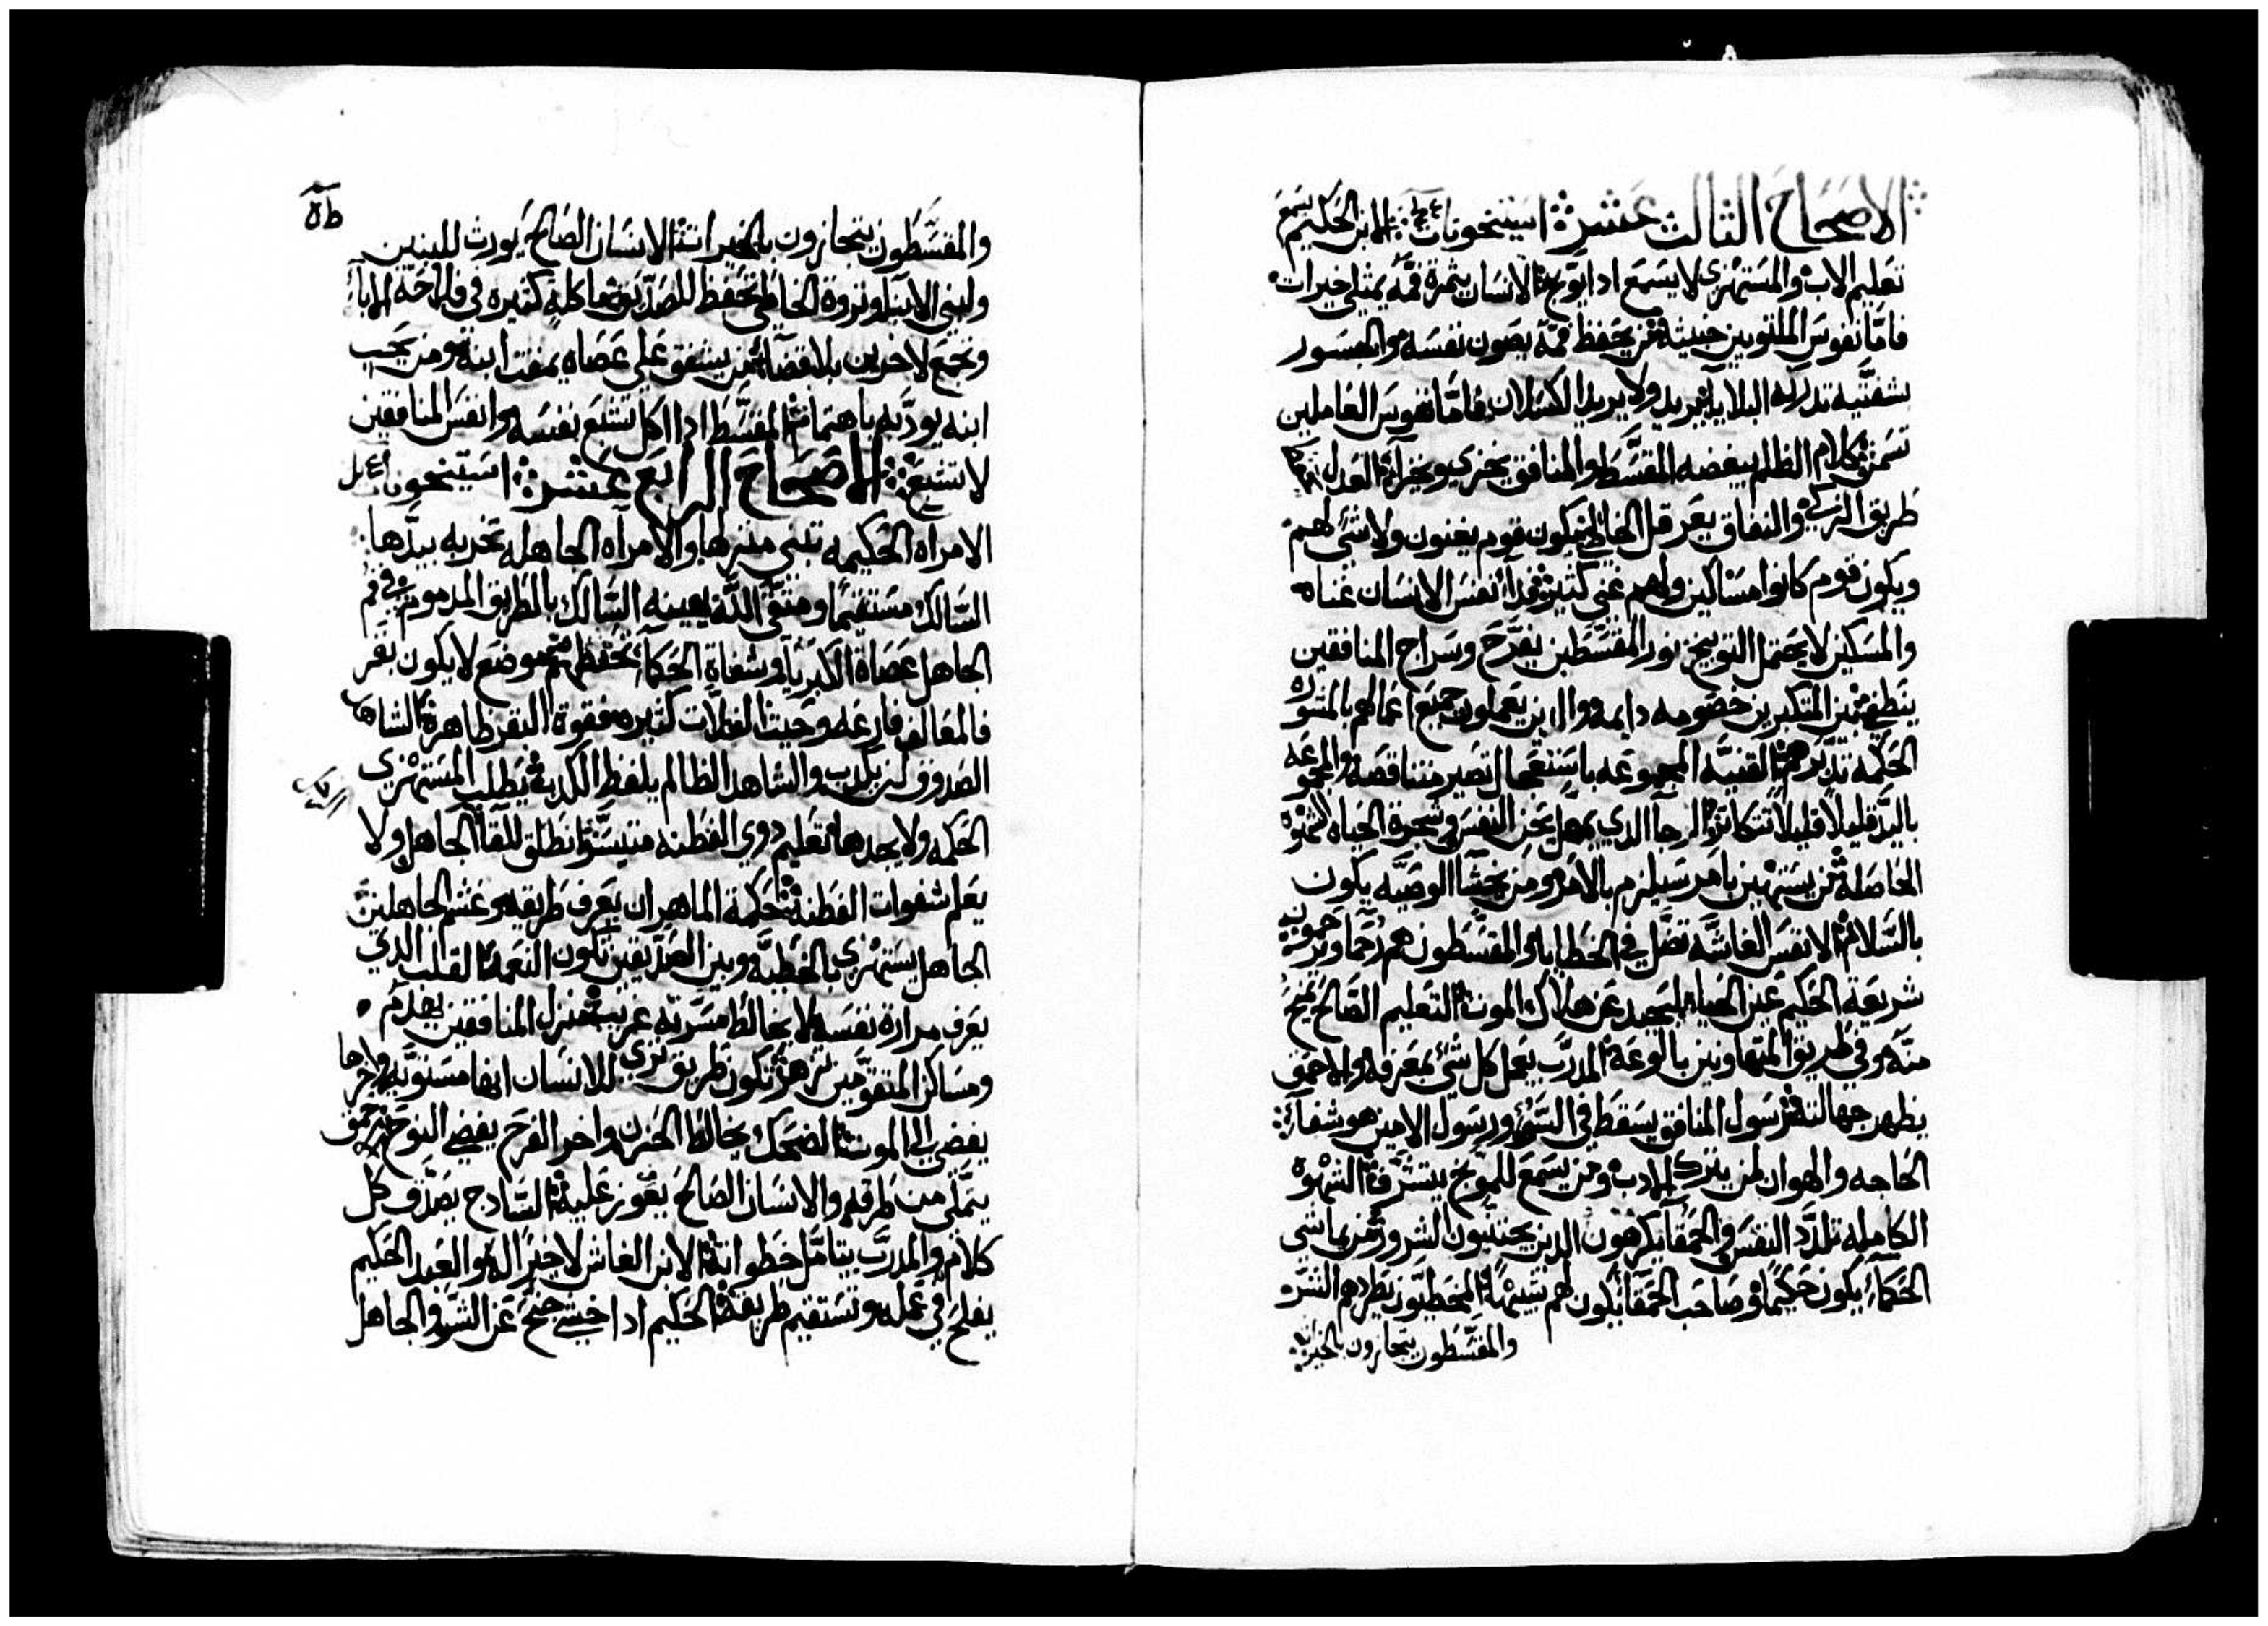 الاصحاح التالت عشر استيخونات الابن الحكيم يسمع
تعليم الاب والمستهزي لا يسمع ادا توبخ الانسان بثمرة فمه يمتلي خيرات
فاما نفوس الملتويين خبيثة من يحفظ فمه يصون نفسه والجسور
بشفتيه تدركه البلايا يريد ولا يريد الكسلان فاما نفوس العاملين
تسمن كلام الظلم يبغضه المقسط والمنافق يخزي ويخزا العدل
طريق الزكي والنفاق يعرقل الخاطي يكون قوم يغنون ولا شي لهم
ويكون قوم كانوا مساكين ولهم غني كتير فدا نفس الانسان غناه
والمسكين لا يحتمل التوبيخ نور المقسطين يفرح وسراج المنافقين
ينطفي بين المتكبرين خصومه دايمه والدين يعملون جميع اعمالهم بالمشوره
الحكمه تدبرهم القنيه المجموعه باستعجال تصير متناقصه والمجموعه
باليد قليلا قليلا تتكاتر الرجا الدي يمهل يحزن النفس وشجرة الحياه الشهوه
الحاصله من يستهين بامر سيلزم بالامر ومن يخشا الوصيه يكون
بالسلام الانفس الغاشه تضل في الخطايا والمقسطون هم رحما ويرحمون
شريعة الحكيم عين الحياه ليحيد عن هلاك الموت التعليم الصالح يمنح
منه وفي طريق المتهاونين بالوعه المدرب يعمل كل شي بمعرفه والاحمق
يظهر جهالته رسول المنافق يسقط في السو ورسول الامين هو شفا
الحاجه والهوان لمن يترك الادب ومن يسمع للموبخ يتشرف الشهوة
الكامله تلدد النفس والحمقا يكرهون الدين يجتنبون الشرور من يماشي
الحكما يكون حكيما وصاحب الحمقا يكون لهم شبيها المخطيون يطردهم الشر
والمقسطون يتجازون بالخيرات
٥٢
والمقسطون يتجازون بالخيرات الانسان الصالح يورث للبنين
ولبني الابنا وتروة الخاطي تحفظ للصديق ماكله كتيره في فلاحة الابا
وتجمع لاخرين بلا قضا من يشفق علي عصاه يمقت ابنه ومن يحب
ابنه يودبه باهتمام المقسط ادا اكل تشبع نفسه وانفس المنافقين
لا تشبع الاصحاح الرابع عشر استيخونات
الامراه الحكيمه تبني منزلها والامراه الجاهله تخربه بيدها
السالك مستقيما ومتقي الله يهينه السالك بالطريق المدموم في فم
الجاهل عصاة الكبريا وشفاة الحكما تحفظهم موضع لا يكون بقر
فالمعالف فارغه وحيت الغلات كتيره فقوة البقر ظاهرة الشاهد
الصدوق لن يكدب والشاهد الظالم يلفظ الكدب يطلب المستهزي
الحكمه ولا يجدها تعليم دوي الفطنه متيسر انطلق للقا الجاهل ولا
يعلم شفوات الفطنه حكمة الماهر ان يعرف طريقه وغش الجاهلين
الجاهل يستهزي بالخطيه وبين الصديقين تكون النعمه القلب الدي
يعرف مرارة نفسه لا يخالط مسرته غريب منزل المنافقين يهدم
ومساكن المتقومين تزهر تكون طريق تري للانسان انها مستويه واخرها
يفضي الي الموت الضحك يخالط الحزن واخر الفرح يفضي النوح
يمتلي من طرقه والانسان الصالح يفوز عليه السادج يصدق كل
كلام والمدرب يتامل خطواته الابن الغاش لا خير له والعبد الحكيم
يفلح في عمله وتستقيم طريقه الحكيم ادا خشي جنح عن الشر والجاهل